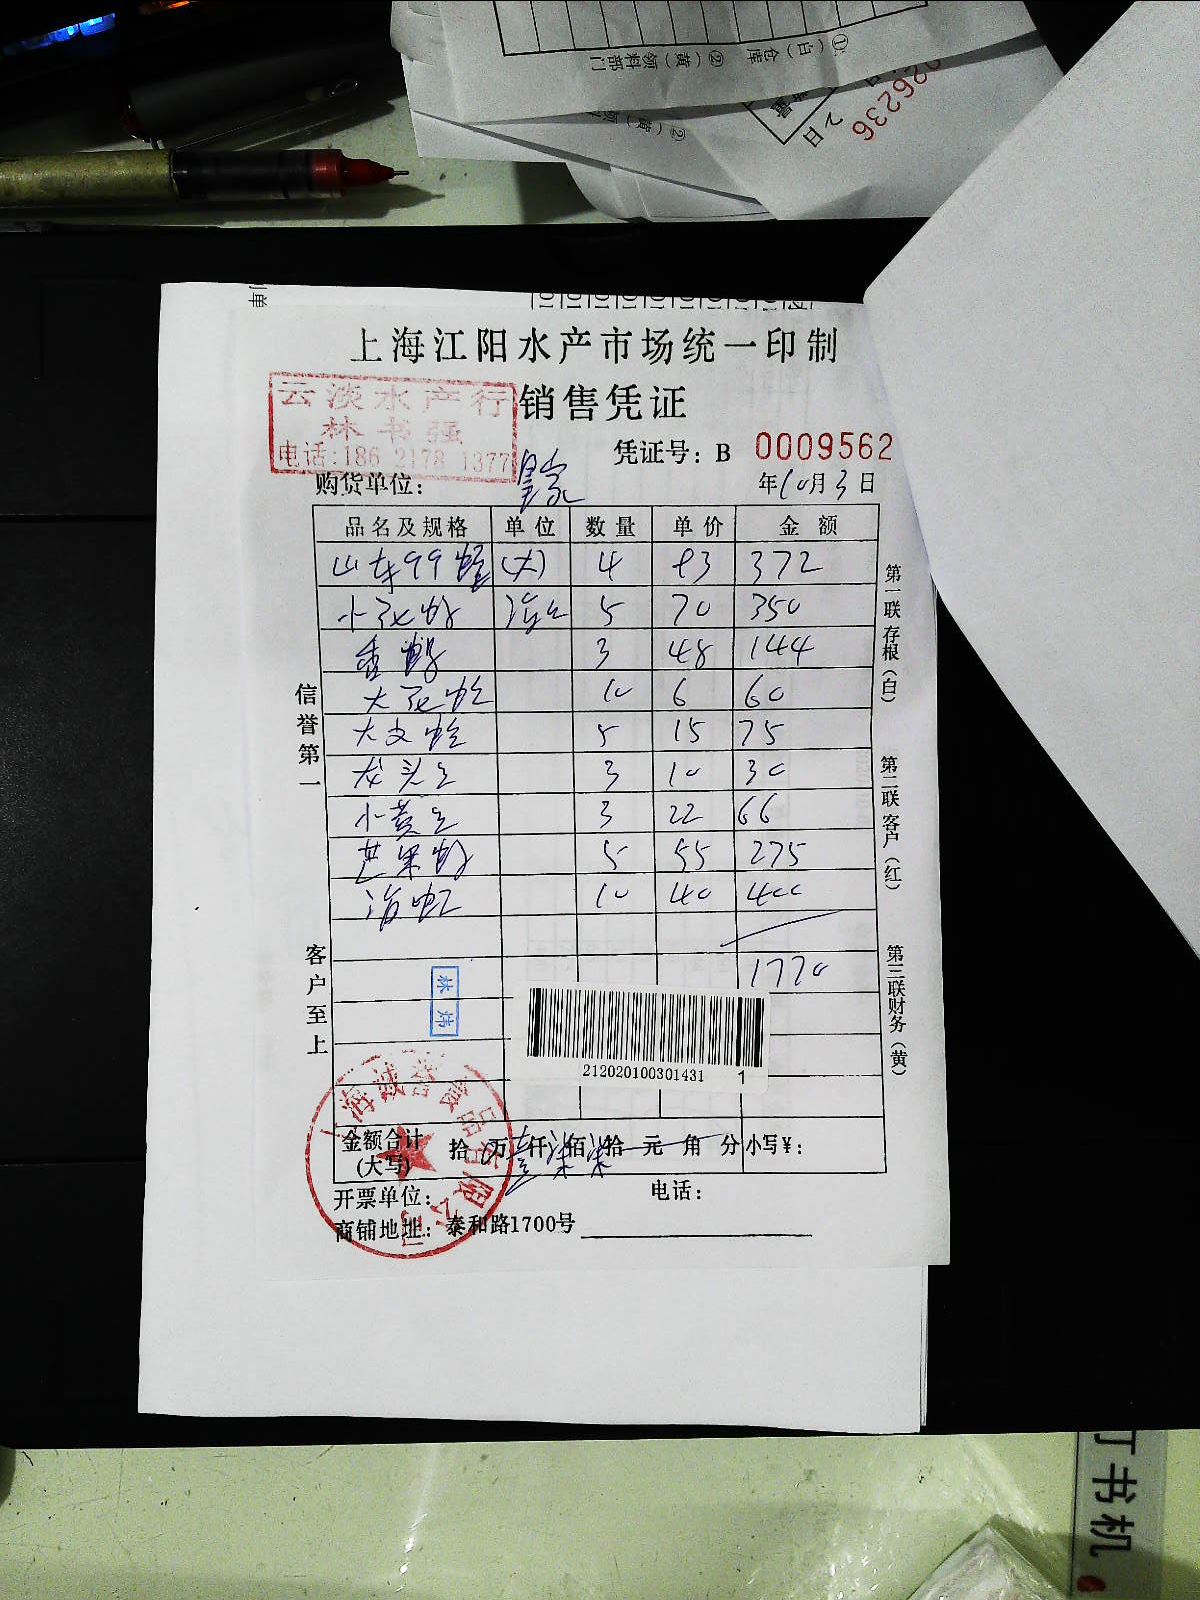 ①(白)仓库 ②(黄)领料部门
026236
2日
上海江阳水产市场统一印制
云淡水产行
林书强
电话:186 2178 1377
销售凭证
凭证号: B 0009562
购货单位: 皇家 年10月3日
品名及规格 单位 数量 单价 金额
山东99蛏 (大) 4 93 372
5 70 350
3 48 144
10 6 60
5 15 75
龙头 3 10 30
小黄 3 22 66
芒果 5 55 275
10 40 400
1770
信誉第一
客户至上
第一联存根(白)
第二联客户(红)
第三联财务(黄)
林炜
212020100301431 1
金额合计(大写) 拾 万 壹 仟 柒 佰 柒 拾 元 角 分 小写¥:
开票单位: 电话:
商铺地址: 泰和路1700号
丁书机